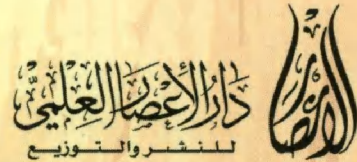 دَارُ الأعصَار العِلميِّ
للنشر والتوزيع